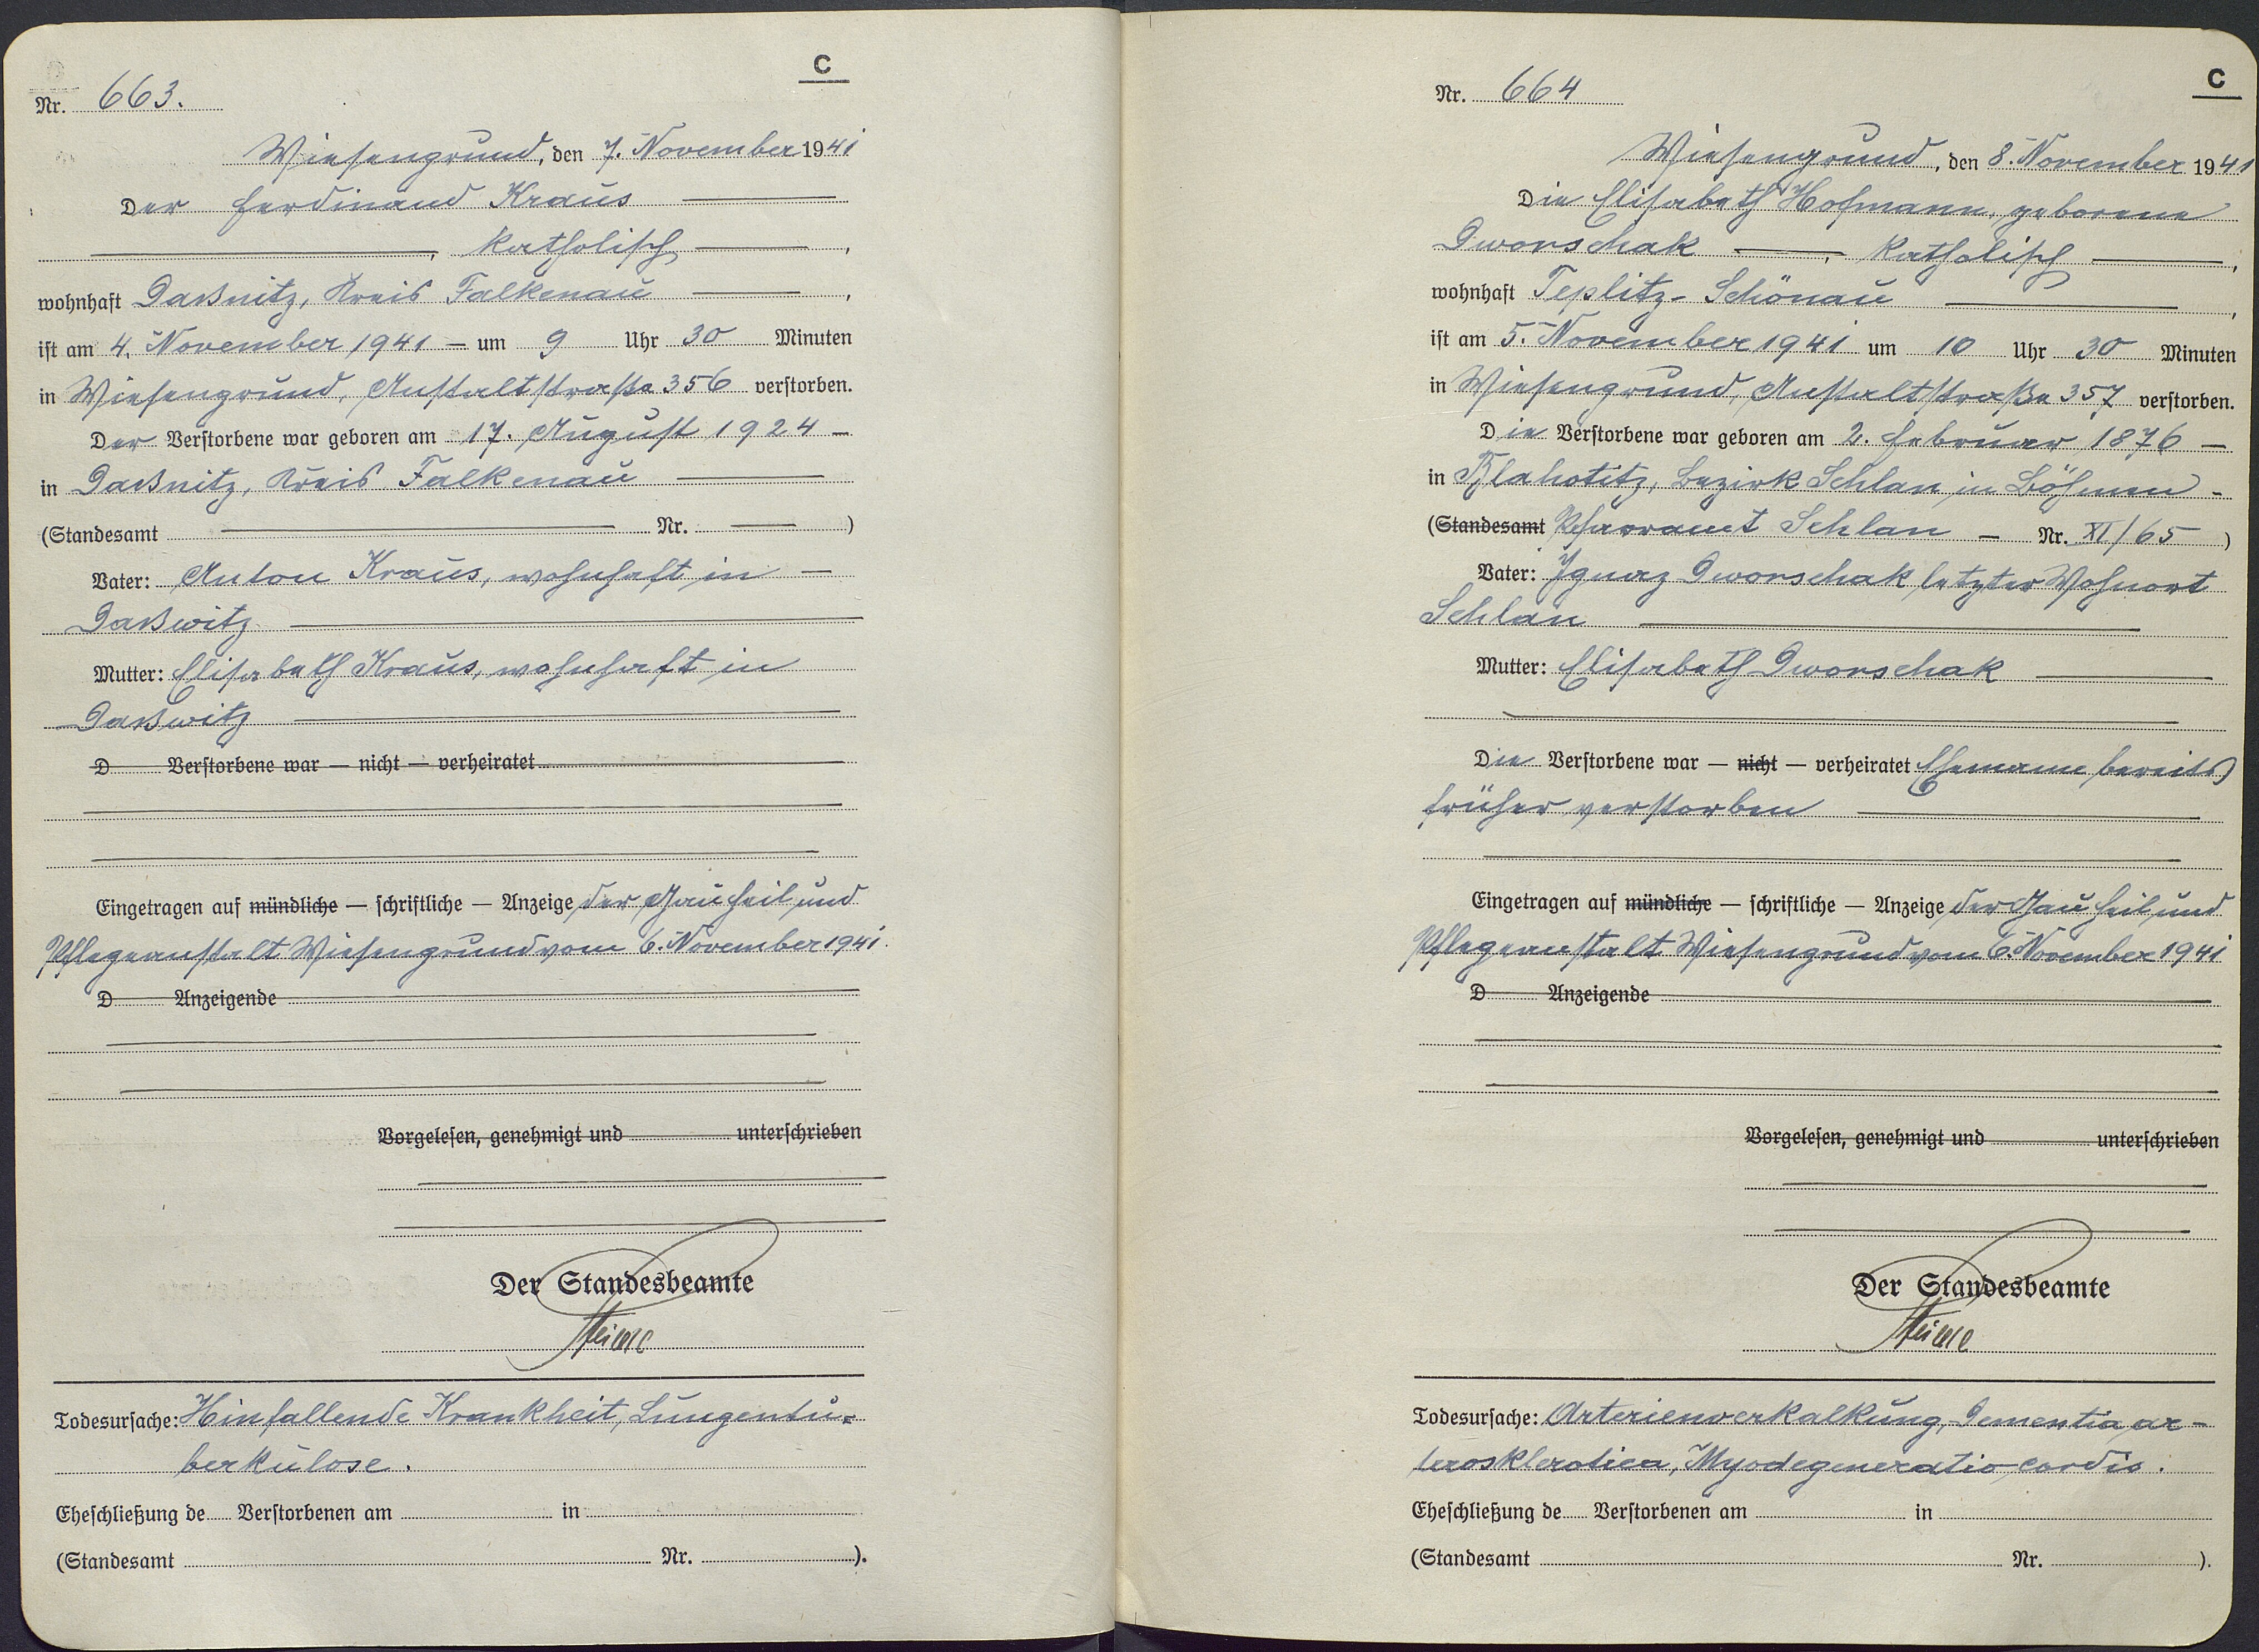 C
Nr. 663.
Wiesengrund, den 7. November 1941
Der Ferdinand Kraus
, katholisch ,
wohnhaft Daßnitz, Kreis Falkenau ,
ist am 4. November 1941 — um 9 Uhr 30 Minuten
in Wiesengrund, Anstaltstraße 356 verstorben.
Der Verstorbene war geboren am 17. August 1924 —
in Daßnitz, Kreis Falkenau
(Standesamt Nr. )
Vater: Anton Kraus, wohnhaft in —
Daßwitz
Mutter: Elisabeth Kraus, wohnhaft in
Daßwitz
D Verstorbene war — nicht — verheiratet
Eingetragen auf mündliche — schriftliche — Anzeige der Gau heil und
Pflegeanstalt Wiesengrund vom 6. November 1941.
D Anzeigende
Vorgelesen, genehmigt und unterschrieben
Der Standesbeamte
Todesursache: Hinfallende Krankheit, Lungentu-
berkulose.
Eheschließung de Verstorbenen am in
(Standesamt Nr. ).
C
Nr. 664
Wiesengrund, den 8. November 1941
Die Elisabeth Hofmann, geborene
Dworschak , katholisch ,
wohnhaft Teplitz-Schönau ,
ist am 5. November 1941 um 10 Uhr 30 Minuten
in Wiesengrund, Anstaltstraße 357 verstorben.
Die Verstorbene war geboren am 2. Februar 1876 —
in Blahotitz, Bezirk Schlan in Böhmen -
(Standesamt Pfarramt Schlan — Nr. XI/65 )
Vater: Ignaz Dworschak letzter Wohnort
Schlan
Mutter: Elisabeth Dworschak
Die Verstorbene war — nicht — verheiratet Ehemann bereits
früher verstorben
Eingetragen auf mündliche — schriftliche — Anzeige der Gau heil und
Pflegeanstalt Wiesengrund vom 6. November 1941
D Anzeigende
Vorgelesen, genehmigt und unterschrieben
Der Standesbeamte
Todesursache: Arterienverkalkung, Dementia ar-
terosklerotica, Myodegeneratio cordis.
Eheschließung de Verstorbenen am in
(Standesamt Nr. ).